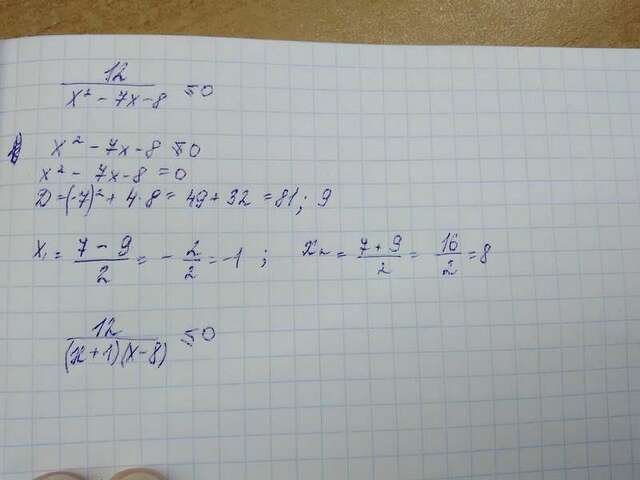 12 / (x² - 7x - 8) ≤ 0
x² - 7x - 8 ≤ 0
x² - 7x - 8 = 0
D = (-7)² + 4·8 = 49 + 32 = 81; 9
x₁ = (7 - 9)/2 = -2/2 = -1 ; x₂ = (7 + 9)/2 = 16/2 = 8
12 / ((x+1)(x-8)) ≤ 0